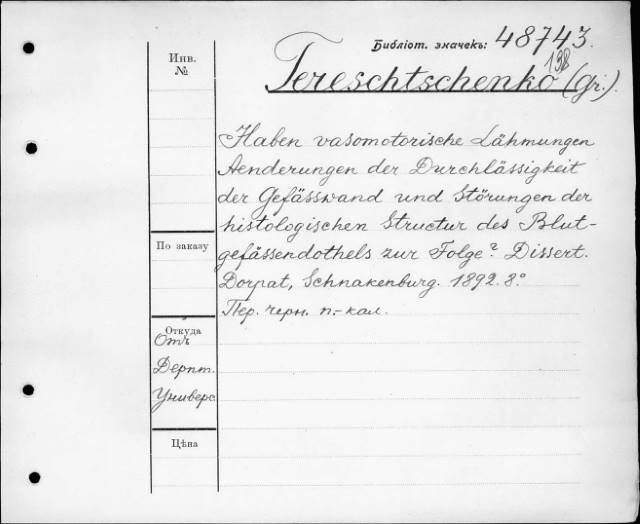 Библіот. значекъ: 48743.
198
Tereschtschenko (Gr.).
Инв.
№
Haben vasomotorische Lähmungen
Aenderungen der Durchlässigkeit
der Gefässwand und Störungen der
histologischen Structur des Blut-
gefässendothels zur Folge? Dissert.
Dorpat, Schnakenburg. 1892. 8°
Пер. черн. п.-кал.
По заказу
Откуда
Отъ
Дерпт.
Универс.
Цѣна